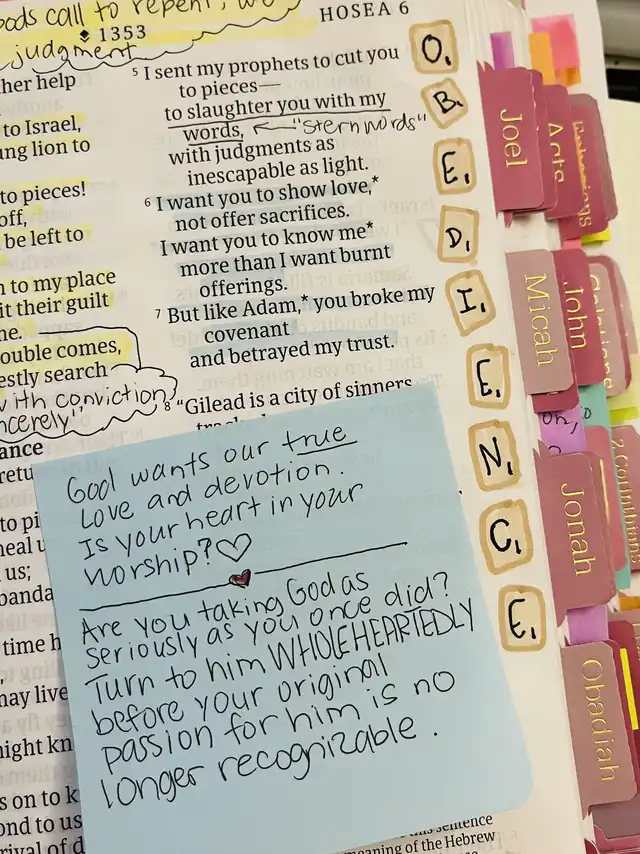 ods call to repent, we
judgment
1353
HOSEA 6
her help
to Israel,
ung lion to
to pieces!
off,
be left to
n to my place
it their guilt
me.
ouble comes,
estly search
with conviction
ncerely"
ance
retu
to pi
heal u
us;
banda
time h
nay live
night kn
s on to k
ond to us
rival of d
5 I sent my prophets to cut you
to pieces—
to slaughter you with my
words, ← "stern words"
with judgments as
inescapable as light.
6 I want you to show love,*
not offer sacrifices.
I want you to know me*
more than I want burnt
offerings.
7 But like Adam,* you broke my
covenant
and betrayed my trust.
8 "Gilead is a city of sinners
God wants our true
love and devotion.
Is your heart in your
worship? ♡
Are you taking God as
seriously as you once did?
Turn to him WHOLEHEARTEDLY
before your original
passion for him is no
longer recognizable.
this sentence
meaning of the Hebrew
O.
B.
E.
D.
I.
E.
N.
C.
E.
Joel
Acts
Micah
John
Galatians
Jonah
2 Corinthians
Obadiah